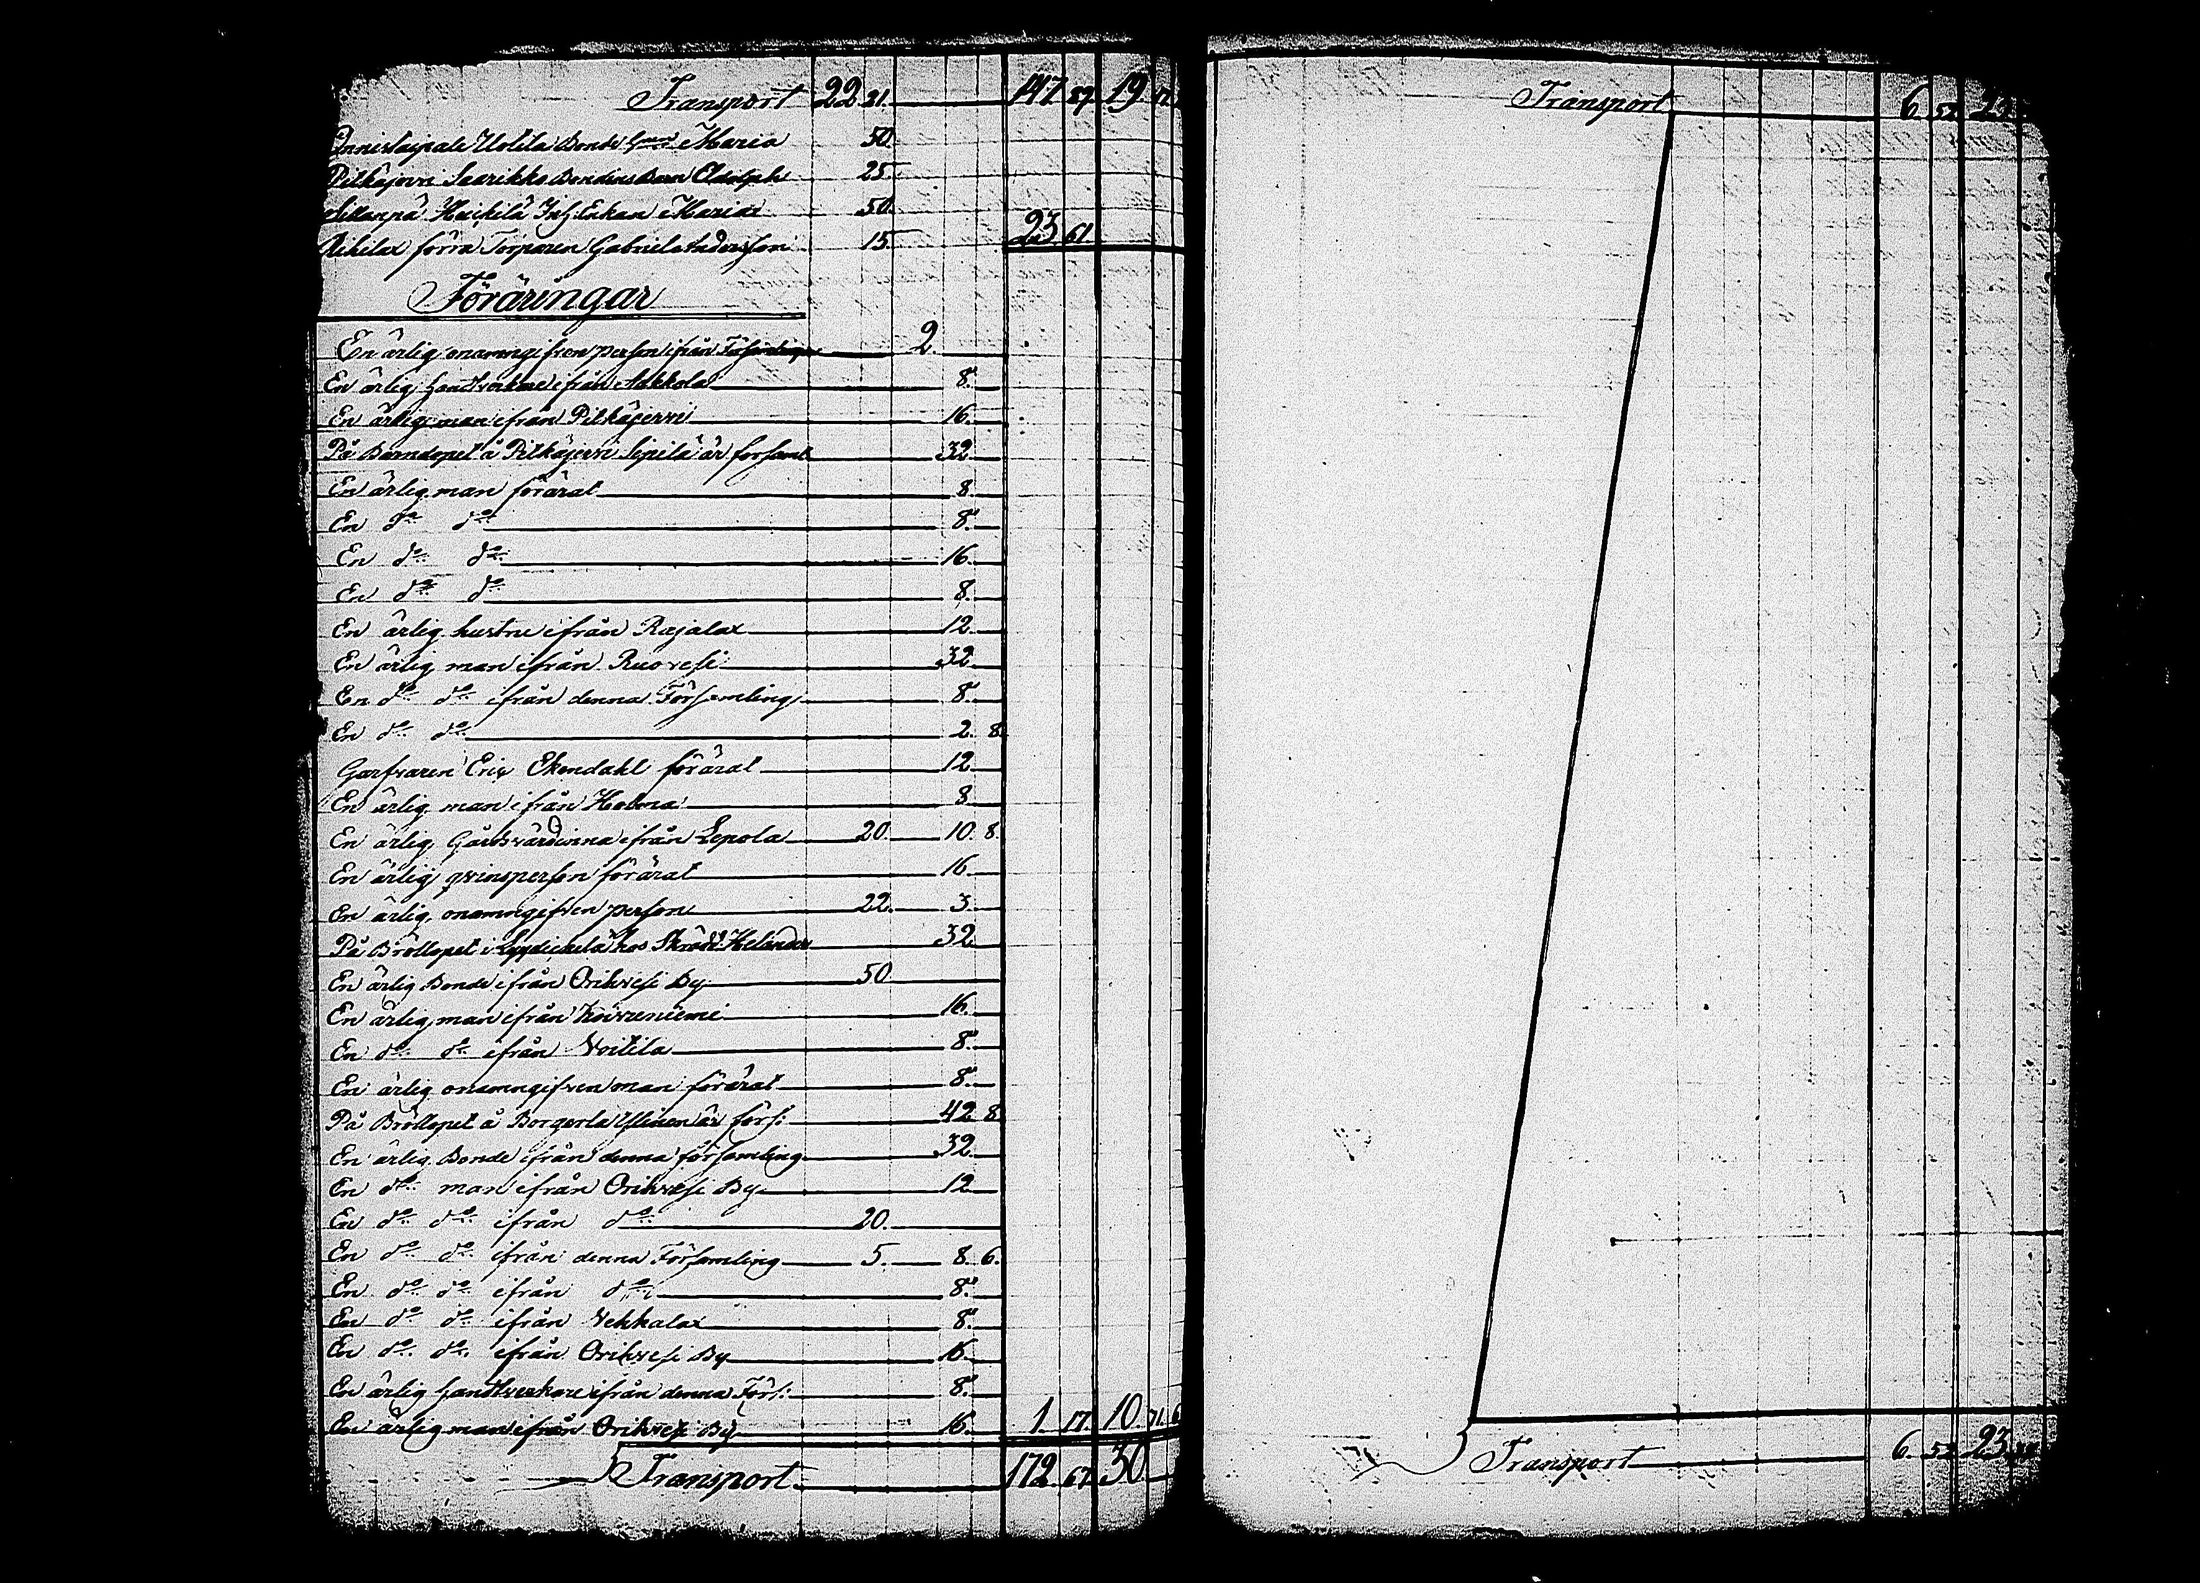 Transport 22 21. 147. 89. 19. 17.
Onnistaipale Uotila Bonde Maria 50.
Pitkäjervi Saarikko Bondens Barn Adolph 25.
Sillanpä Heickilä Inh. Enkan Maria 50.
förra Torparen Gabriel Andersson 15. 23. 61.
Föräringar
En ärlig onamngifven person ifrån Församlingen 2.
En ärlig handtverkare ifrån Aakkola 8.
En ärlig man ifrån Pitkäjervi 16.
På Barndopet å Pitkäjervi Sepilä är församl. 32.
En ärlig man förärat 8.
En do do 8.
En do do 16.
En do do 8.
En ärlig hustru ifrån Rajalax 12.
En ärlig man ifrån Ruovesi 32.
En do do ifrån denna Församling 8.
En do do 2. 8.
Garfvaren Eric Ekendahl förärat 12.
En ärlig man ifrån Holma 8.
En ärlig Gårdsvärdinna ifrån Lepola 20. 10. 8.
En ärlig qvinsperson förärat 16.
En ärlig onamngifven person 22. 3.
På Bröllopet i hos Skrädd. Helander 32.
En ärlig Bonde ifrån Orihvesi By 50.
En ärlig man ifrån Koivuniemi 16.
En do do ifrån Voitila 8.
En ärlig onamngifven man förärat 8.
På Bröllopet å Borgerla Ylinen är förs: 42. 8.
En ärlig Bonde ifrån denna församling 32.
En do man ifrån Orihvesi By 12.
En do do ifrån do 20.
En do do ifrån denna Församling 5. 8. 6.
En do do ifrån do 8.
En do do ifrån Vehkalax 8.
En do do ifrån Orihvesi By 16.
En ärlig handtverkare ifrån denna Förs: 8.
En ärlig man ifrån Orihvesi By 16. 1. 17. 10. 71. 6
Transport 172. 67. 30.
Transport 6. 52. 23.
Transport 6. 52. 23.